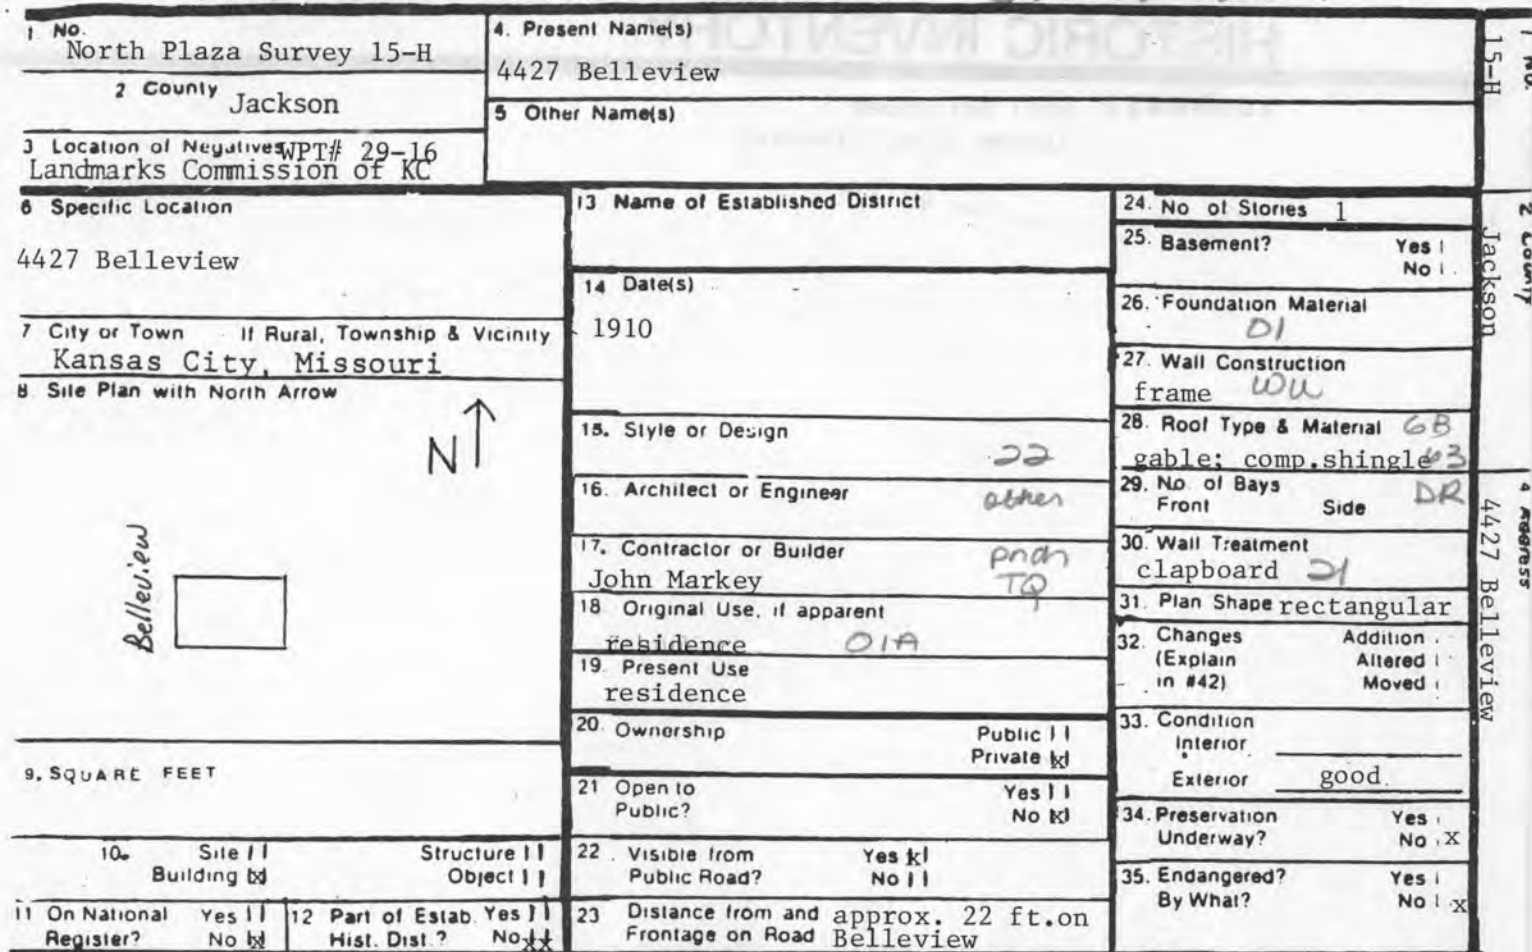 HISTORIC INVENTORY
1. No.
North Plaza Survey 15-H
2 County Jackson
3 Location of Negatives WPT# 29-16
Landmarks Commission of KC
4. Present Name(s)
4427 Belleview
5 Other Name(s)
6 Specific Location
4427 Belleview
7 City or Town If Rural, Township & Vicinity
Kansas City, Missouri
8 Site Plan with North Arrow
N
Belleview
9. SQUARE FEET
10. Site | | Structure | |
Building |x| Object | |
11 On National Register? Yes | | No |x|
12 Part of Estab. Hist. Dist.? Yes | | No xx
13 Name of Established District
14 Date(s)
1910
15. Style or Design
22
16. Architect or Engineer
other
17. Contractor or Builder
John Markey
TQ
18 Original Use, if apparent
residence 01A
19. Present Use
residence
20. Ownership Public | |
Private |x|
21 Open to Yes | |
Public? No |x|
22. Visible from Yes |x|
Public Road? No | |
23 Distance from and approx. 22 ft.on
Frontage on Road Belleview
24. No of Stories 1
25. Basement? Yes |
No |
26. Foundation Material
01
27. Wall Construction
frame WW
28. Roof Type & Material GB
gable; comp.shingle 63
29. No. of Bays DR
Front Side
30. Wall Treatment
clapboard 21
31. Plan Shape rectangular
32. Changes Addition
(Explain Altered |
in #42) Moved |
33. Condition
Interior
Exterior good
34. Preservation Yes
Underway? No x
35. Endangered? Yes |
By What? No | x
1 No.
15-H
2 County
Jackson
4 Address
4427 Belleview